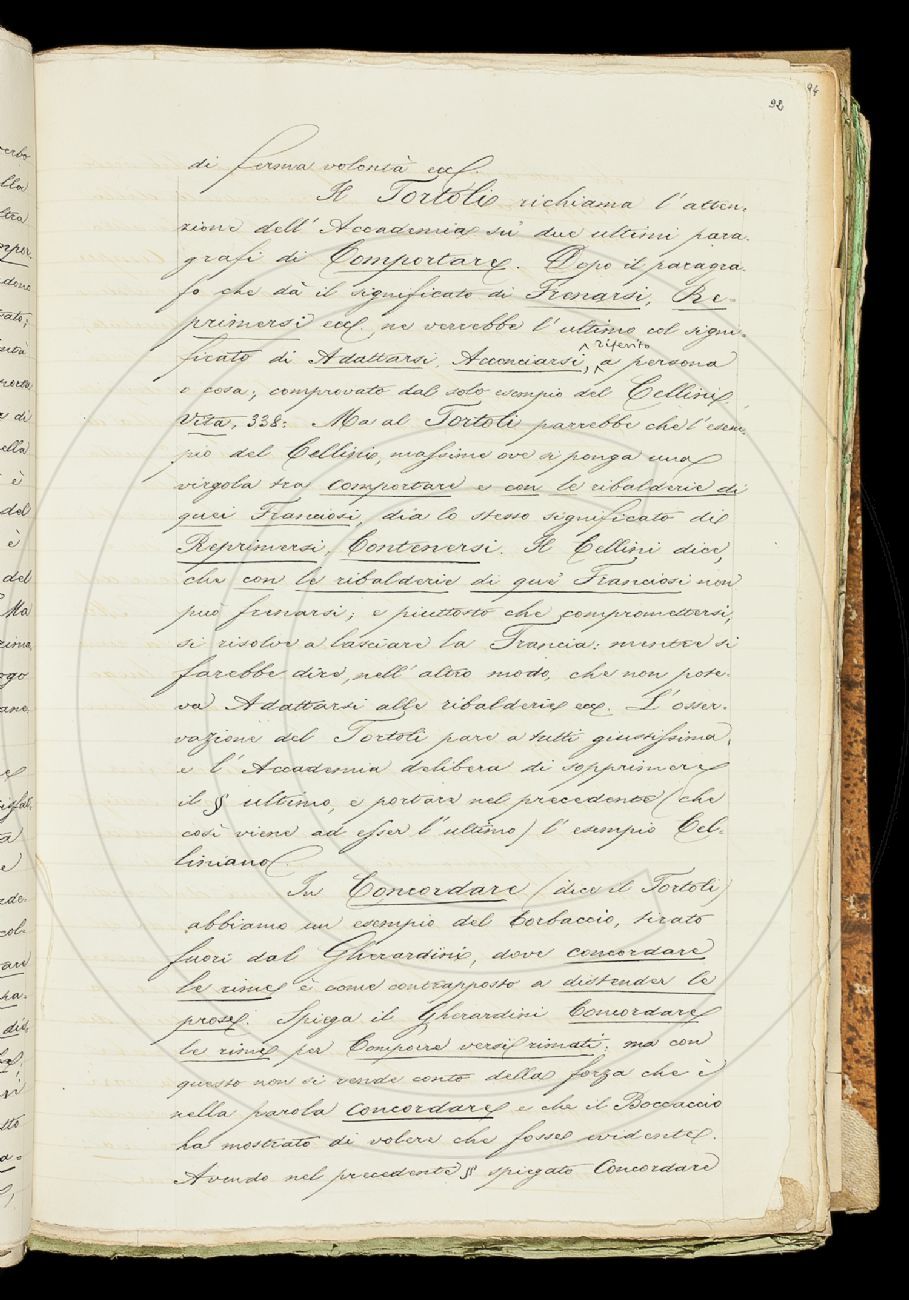 92
94
di ferma volontà ecc.
Il Tortoli richiama l'atten-
zione dell'Accademia su' due ultimi para-
grafi di Comportare. Dopo il paragra-
fo che dà il significato di Frenarsi, Re-
primersi ecc. ne verrebbe l'ultimo col signi-
riferito
ficato di Adattarsi, Acconciarsi, a persona
o cosa; comprovato dal solo esempio del Cellini
Vita, 338: Ma al Tortoli parrebbe che l'esem-
pio del Cellini, massime ove si ponga una
virgola tra comportare e con le ribalderie di
quei Franciosi, dia lo stesso significato di
Reprimersi, Contenersi. Il Cellini dice,
che con le ribalderie di que' Franciosi non
può frenarsi; e piuttosto che compromettersi,
si risolve a lasciare la Francia: mentre si
farebbe dire, nell'altro modo, che non pote-
va Adattarsi alle ribalderie ecc. L'osser-
vazione del Tortoli pare a tutti giustissima,
e l'Accademia delibera di sopprimere
il § ultimo, e portare nel precedente (che
così viene ad esser l'ultimo) l'esempio Cel-
liniano.
In Concordare (dice il Tortoli)
abbiamo un esempio del Corbaccio, tirato
fuori dal Gherardini, dove concordare
le rime è come contrapposto a distender le
prose. Spiega il Gherardini Concordare
le rime per Comporre versi rimati; ma con
questo non si rende conto della forza che è
nella parola concordare e che il Boccaccio
ha mostrato di volere che fosse evidente.
Avendo nel precedente § spiegato Concordare